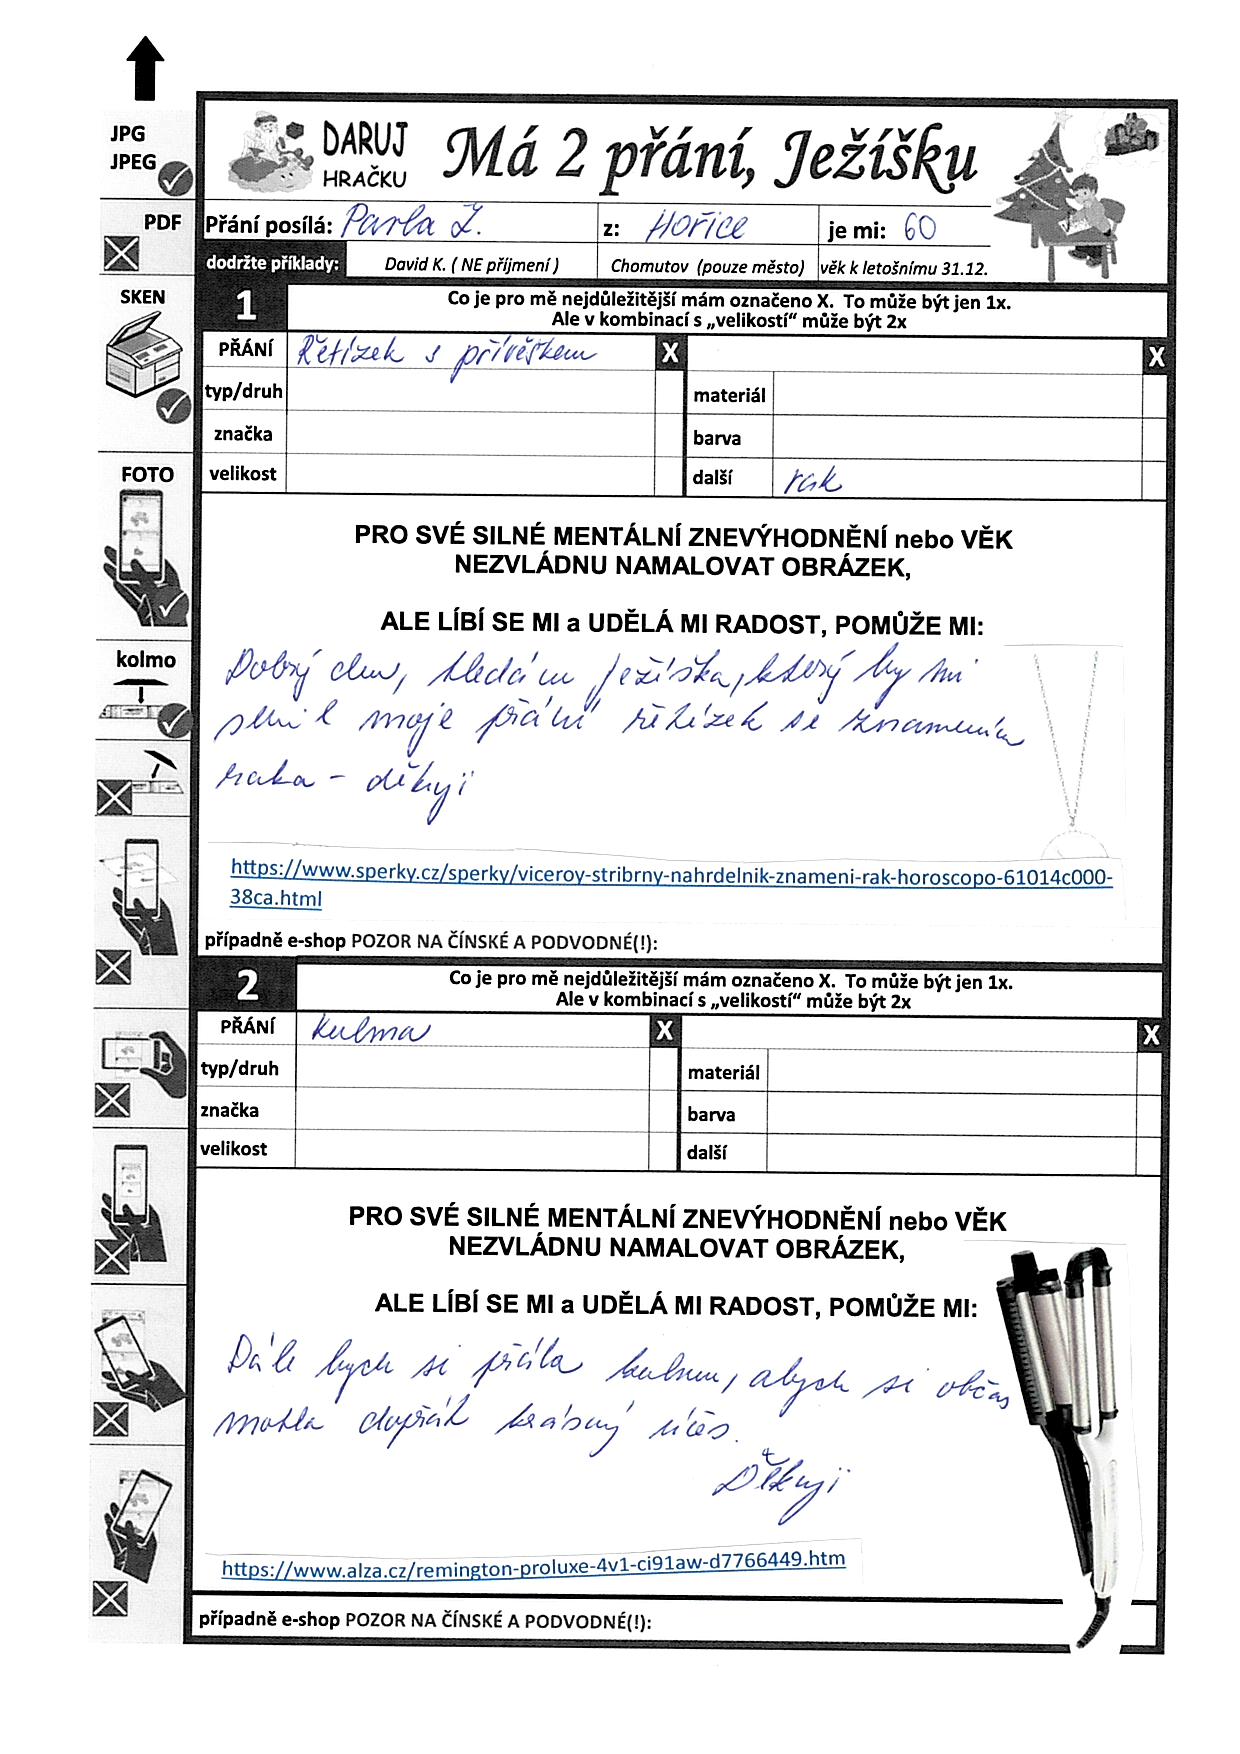 JPG
JPEG
PDF
SKEN
FOTO
kolmo
DARUJ
HRAČKU
Má 2 přání, Ježíšku
Přání posílá: Pavla Z. z: Hořice je mi: 60
dodržte příklady: David K. ( NE příjmení ) Chomutov (pouze město) věk k letošnímu 31.12.
1 Co je pro mě nejdůležitější mám označeno X. To může být jen 1x.
Ale v kombinací s „velikostí“ může být 2x
PŘÁNÍ Řetízek s přívěškem X X
typ/druh materiál
značka barva
velikost další rak
PRO SVÉ SILNÉ MENTÁLNÍ ZNEVÝHODNĚNÍ nebo VĚK
NEZVLÁDNU NAMALOVAT OBRÁZEK,
ALE LÍBÍ SE MI a UDĚLÁ MI RADOST, POMŮŽE MI:
Dobrý den, hledám Ježíška, který by mi
splnil moje přání řetízek se znamením
raka - děkuji
https://www.sperky.cz/sperky/viceroy-stribrny-nahrdelnik-znameni-rak-horoscopo-61014c000-
38ca.html
případně e-shop POZOR NA ČÍNSKÉ A PODVODNÉ(!):
2 Co je pro mě nejdůležitější mám označeno X. To může být jen 1x.
Ale v kombinací s „velikostí“ může být 2x
PŘÁNÍ kulma X X
typ/druh materiál
značka barva
velikost další
PRO SVÉ SILNÉ MENTÁLNÍ ZNEVÝHODNĚNÍ nebo VĚK
NEZVLÁDNU NAMALOVAT OBRÁZEK,
ALE LÍBÍ SE MI a UDĚLÁ MI RADOST, POMŮŽE MI:
Dále bych si přála kulmu, abych si občas
mohla dopřát krásný účes.
Děkuji
https://www.alza.cz/remington-proluxe-4v1-ci91aw-d7766449.htm
případně e-shop POZOR NA ČÍNSKÉ A PODVODNÉ(!):